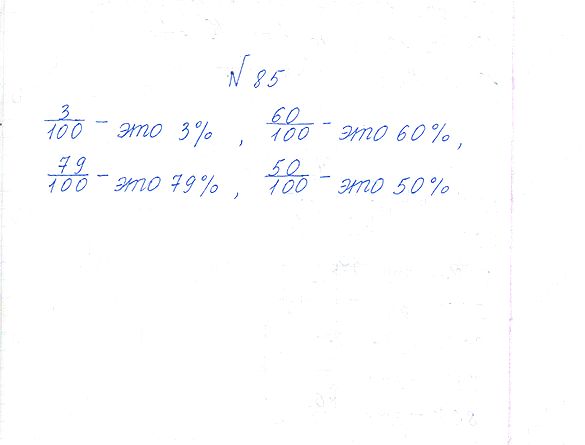 № 85
3/100 – это 3% , 60/100 – это 60%,
79/100 – это 79% , 50/100 – это 50%